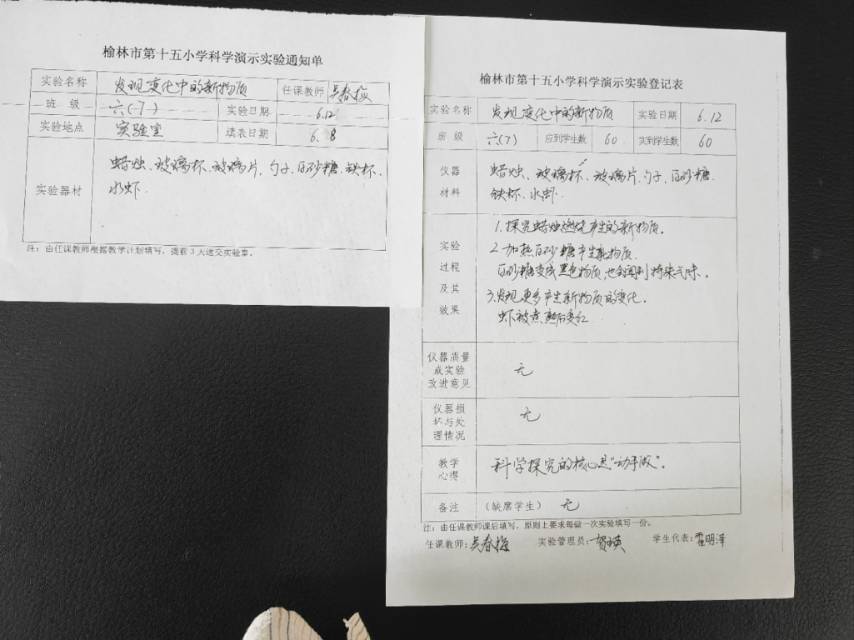 榆林市第十五小学科学演示实验通知单
实验名称 发现变化中的新物质 任课教师 吴春梅
班 级 六(7) 实验日期 6.12
实验地点 实验室 填表日期 6.8
实验器材
蜡烛、玻璃杯、玻璃片、勺子、白砂糖、铁杯、
水虾.
注：由任课教师根据教学计划填写，提前3天送交实验室。
榆林市第十五小学科学演示实验登记表
实验名称 发现变化中的新物质 实验日期 6.12
班 级 六(7) 应到学生数 60 实到学生数 60
仪器
材料
蜡烛、玻璃杯、玻璃片、勺子、白砂糖、
铁杯、水虾.
实验
过程
及其
效果
1.探究蜡烛燃烧产生的新物质。
2.加热白砂糖产生新物质.
白砂糖变成黑色物质,也会闻到
3.发现更多产生新物质的变化.
虾被煮熟后变红
仪器质量
或实验
改进意见
无
仪器损
坏与处
理情况
无
教学
心得
科学探究的核心是"动手做".
备注 (缺席学生) 无
注：由任课教师课后填写，原则上要求每做一次实验填写一份。
任课教师：吴春梅 实验管理员： 学生代表：霍明泽